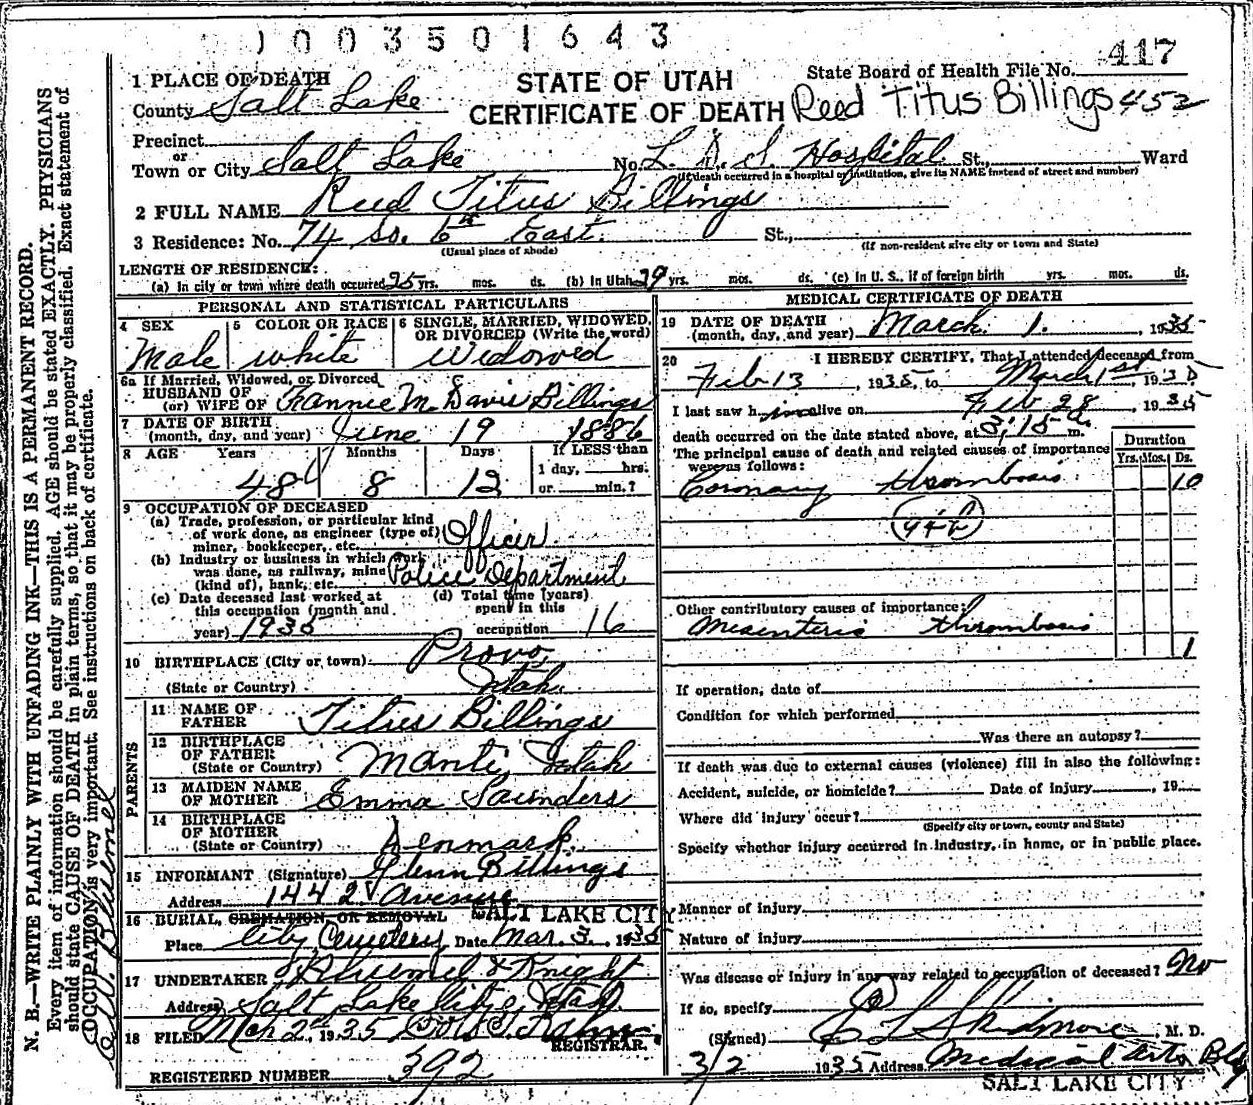 1003501643
STATE OF UTAH
CERTIFICATE OF DEATH
State Board of Health File No. 417
Reed Titus Billings 452
1 PLACE OF DEATH
County Salt Lake
Precinct
or
Town or City Salt Lake No. L. D. S. Hospital St., Ward
(If death occurred in a hospital or institution, give its NAME instead of street and number)
2 FULL NAME Reed Titus Billings
3 Residence: No. 74 So. 6th East. St.,
(Usual place of abode) (If non-resident give city or town and State)
LENGTH OF RESIDENCE:
(a) In city or town where death occurred 25 yrs. mos. ds. (b) In Utah 29 yrs. mos. ds. (c) In U. S., if of foreign birth yrs. mos. ds.
PERSONAL AND STATISTICAL PARTICULARS
4 SEX Male
5 COLOR OR RACE white
6 SINGLE, MARRIED, WIDOWED, OR DIVORCED (Write the word) Widowed
6a If Married, Widowed, or Divorced
HUSBAND OF
(or) WIFE OF Fannie M. Davis Billings
7 DATE OF BIRTH
(month, day, and year) June 19 1886
8 AGE Years Months Days If LESS than
48 8 12 1 day, hrs.
or min.?
9 OCCUPATION OF DECEASED
(a) Trade, profession, or particular kind
of work done, as engineer (type of)
miner, bookkeeper, etc. Officer
(b) Industry or business in which work
was done, as railway, mine
(kind of), bank, etc. Police Department
(c) Date deceased last worked at
this occupation (month and
year) 1935
(d) Total time (years)
spent in this
occupation 16
10 BIRTHPLACE (City or town) Provo,
(State or Country) Utah
PARENTS
11 NAME OF
FATHER Titus Billings
12 BIRTHPLACE
OF FATHER
(State or Country) Manti Utah
13 MAIDEN NAME
OF MOTHER Emma Saunders
14 BIRTHPLACE
OF MOTHER
(State or Country) Denmark
15 INFORMANT (Signature) Glenn Billings
Address 144 2 Avenue
16 BURIAL, CREMATION, OR REMOVAL SALT LAKE CITY
Place City Cemetery Date Mar. 3. 1935
17 UNDERTAKER Bluemel & Knight
Address Salt Lake City, Utah
18 FILED Mar 2nd, 1935
REGISTRAR.
REGISTERED NUMBER 392
MEDICAL CERTIFICATE OF DEATH
19 DATE OF DEATH
(month, day, and year) March 1. , 1935
20 I HEREBY CERTIFY, That I attended deceased from
Feb 13 , 1935, to March 1st, 1935
I last saw him alive on Feb 28 , 1935
death occurred on the date stated above, at 3:15 m.
The principal cause of death and related causes of importance
were as follows:
Duration
Yrs. Mos. Ds.
Coronary thrombosis 10
Other contributory causes of importance:
Mesenteric thrombosis
1
If operation, date of
Condition for which performed
Was there an autopsy?
If death was due to external causes (violence) fill in also the following:
Accident, suicide, or homicide? Date of injury , 19
Where did injury occur?
(Specify city or town, county and State)
Specify whether injury occurred in industry, in home, or in public place.
Manner of injury
Nature of injury
Was disease or injury in any way related to occupation of deceased? No
If so, specify
(Signed) Skidmore M. D.
3/2 1935 Address Medical Arts Bldg
SALT LAKE CITY
N. B.—WRITE PLAINLY WITH UNFADING INK—THIS IS A PERMANENT RECORD.
Every item of information should be carefully supplied. AGE should be stated EXACTLY. PHYSICIANS
should state CAUSE OF DEATH in plain terms, so that it may be properly classified. Exact statement of
OCCUPATION is very important. See instructions on back of certificate.
Bluemel